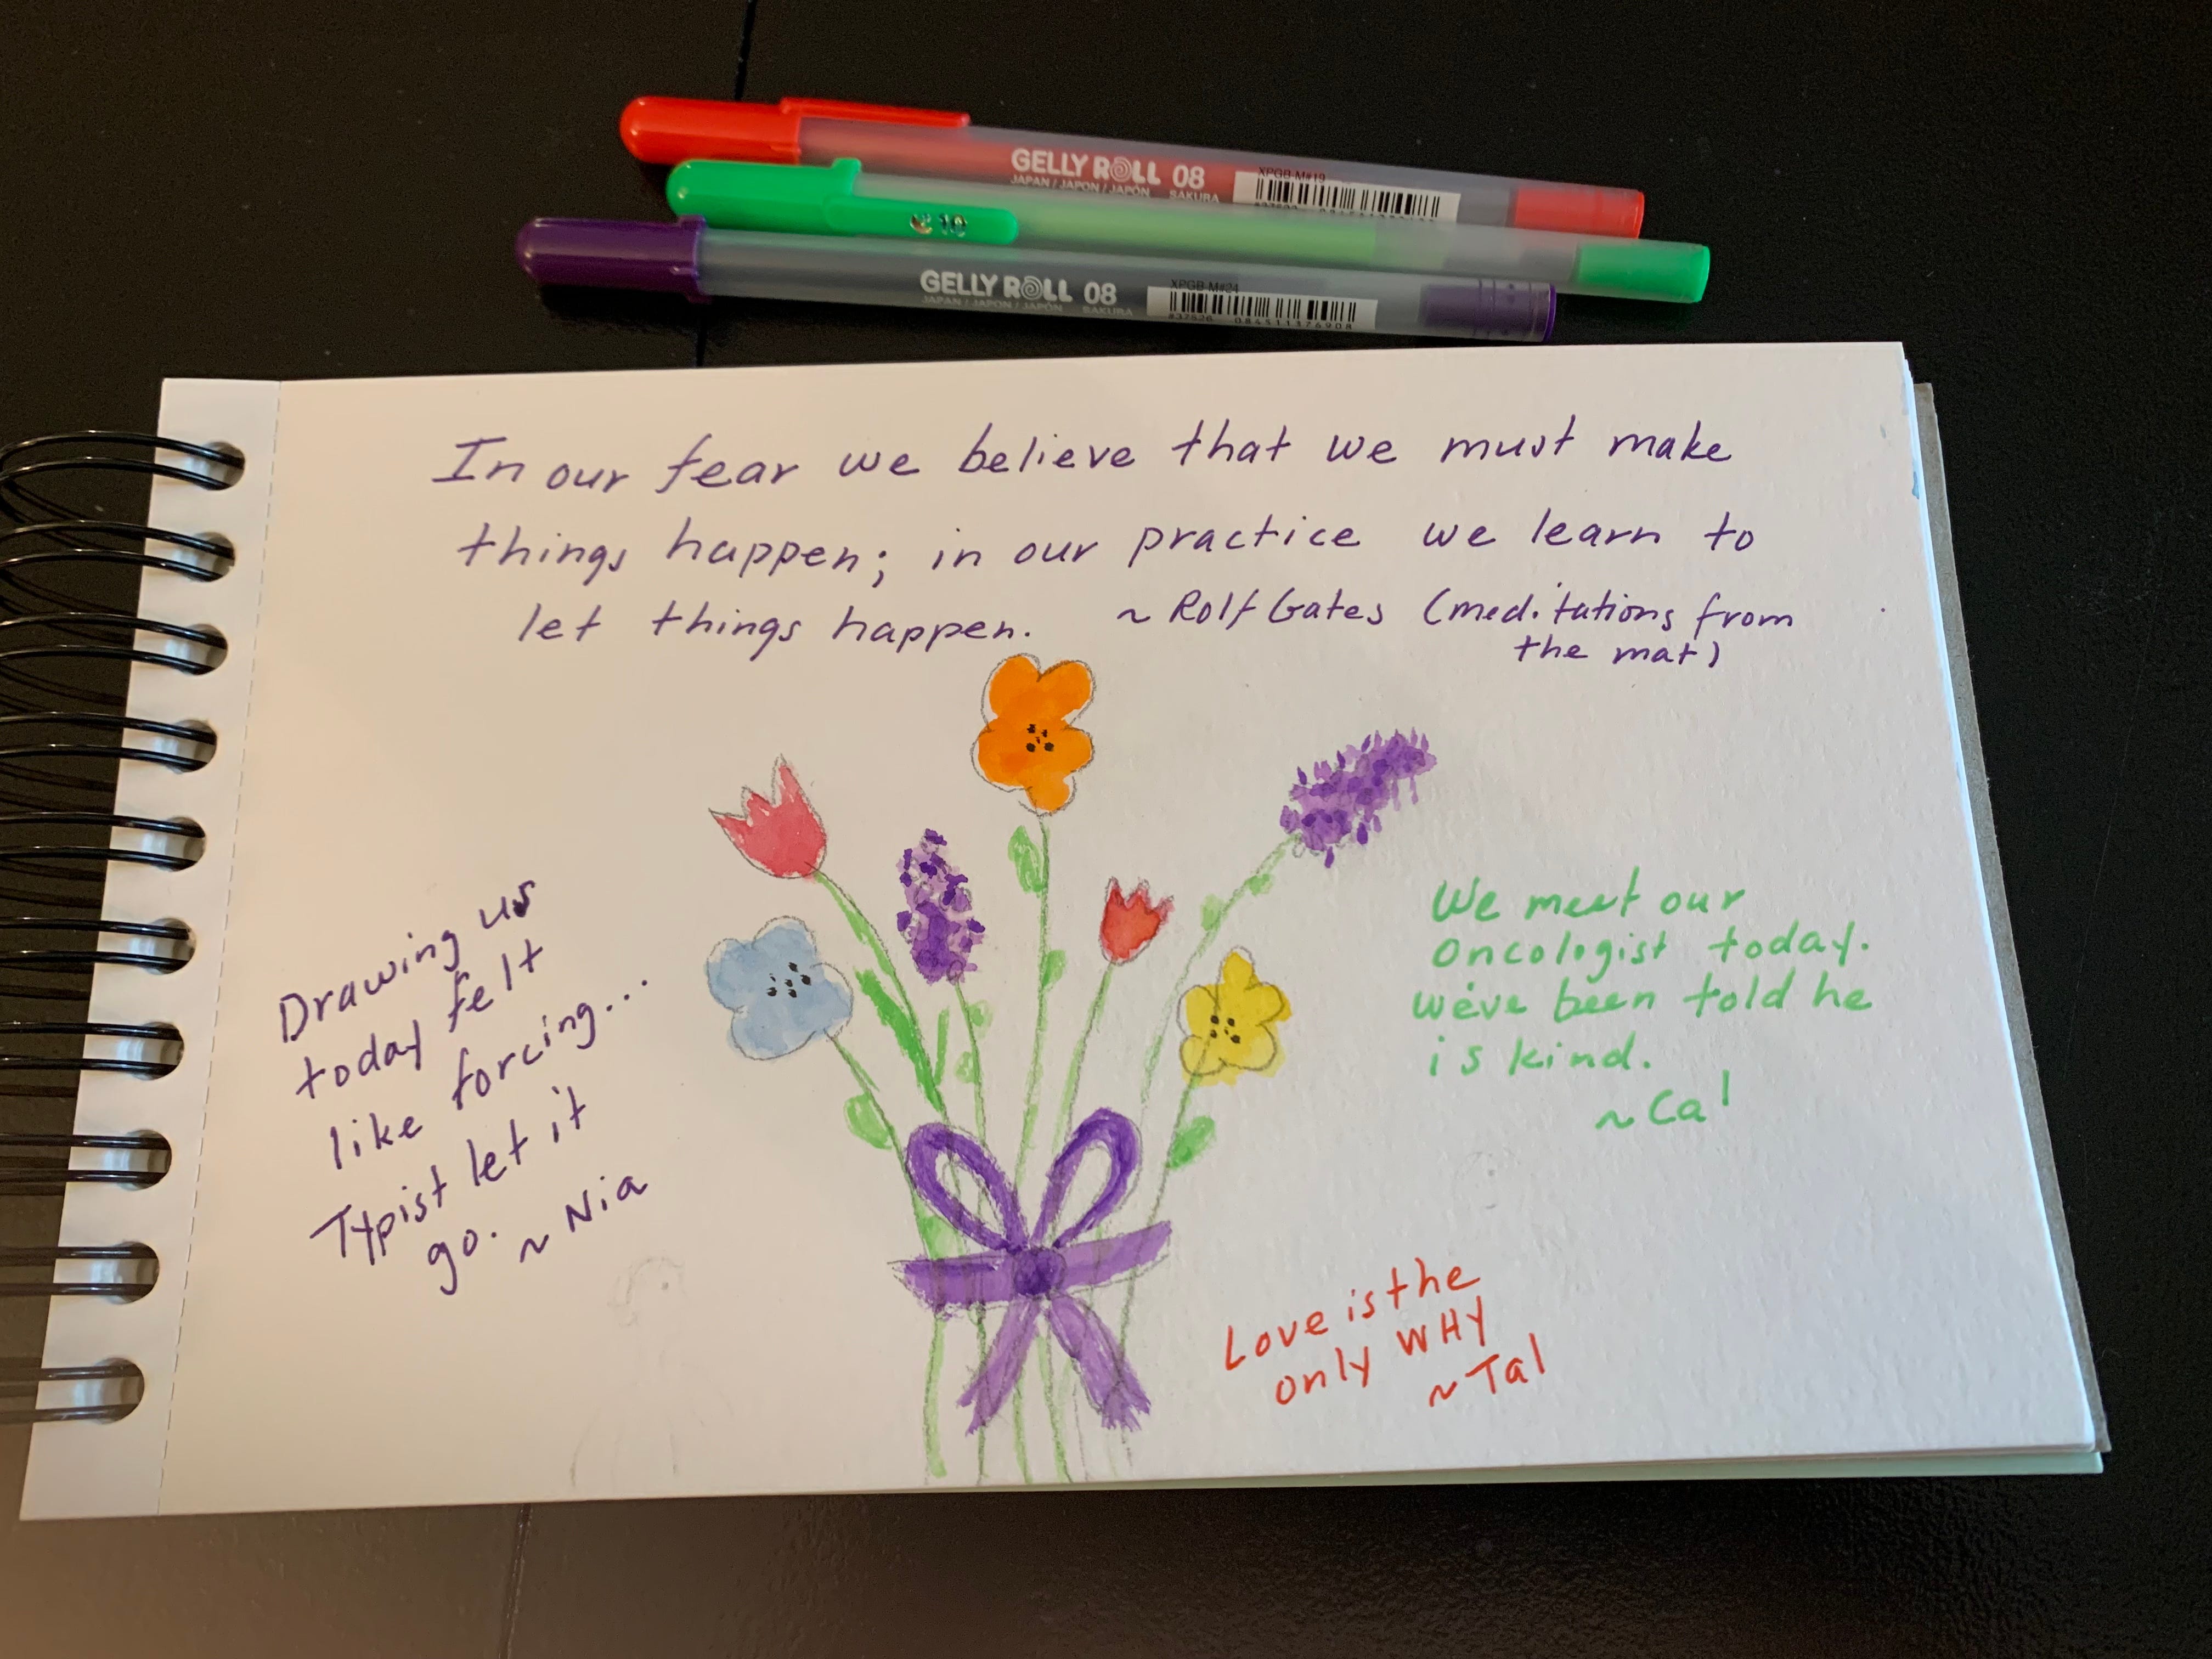 GELLY ROLL 08
JAPAN / JAPON / JAPÓN SAKURA
XPGB-M#19
10
GELLY ROLL 08
JAPAN / JAPON / JAPÓN SAKURA
XPGB-M#24
#37526 084511376908
In our fear we believe that we must make
things happen; in our practice we learn to
let things happen. ~ Rolf Gates (meditations from
the mat)
Drawing us
today felt
like forcing...
Typist let it
go. ~ Nia
We meet our
oncologist today.
we've been told he
is kind.
~ Cal
Love is the
only WHY
~ Tal